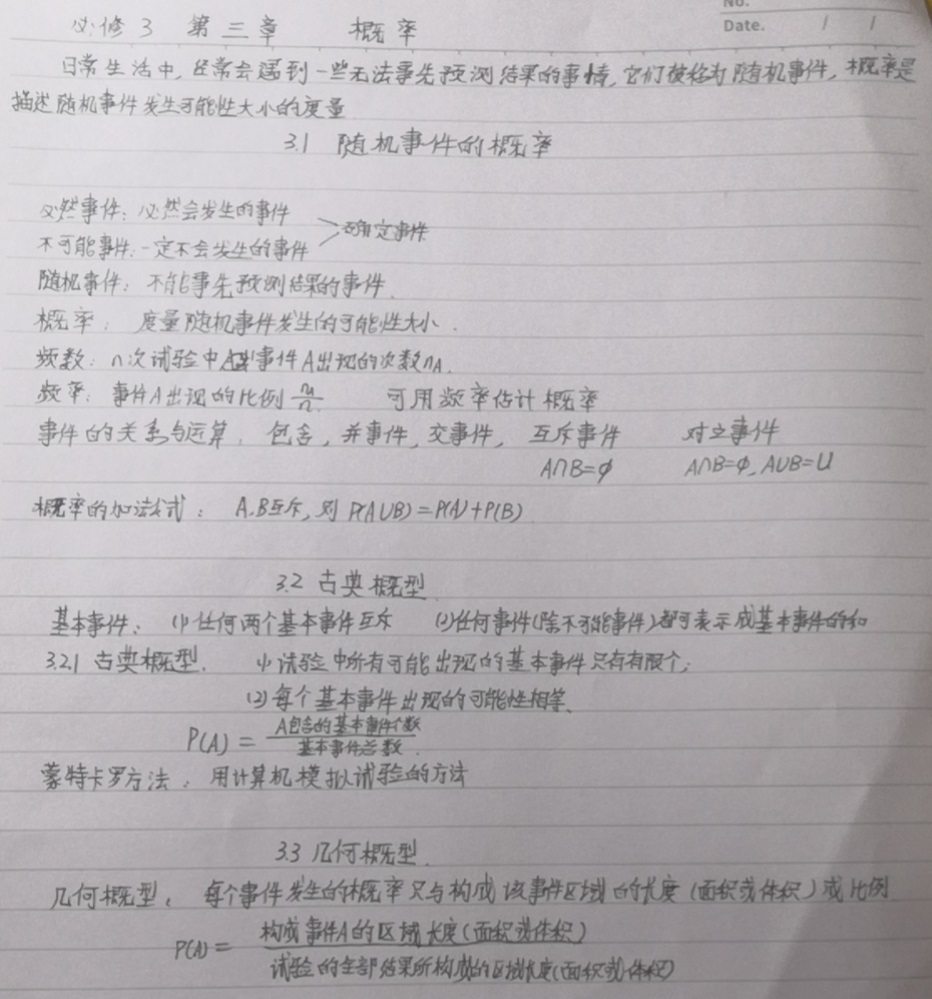 No.
Date. / /
必修3 第三章 概率
日常生活中,经常会遇到一些无法事先预测结果的事情,它们被称为随机事件,概率是
描述随机事件发生可能性大小的度量
3.1 随机事件的概率
必然事件:必然会发生的事件
确定事件
不可能事件:一定不会发生的事件
随机事件:不能事先预测结果的事件.
概率:度量随机事件发生的可能性大小.
频数:n次试验中事件A出现的次数nA.
频率:事件A出现的比例 nA/n 可用频率估计概率
事件的关系与运算:包含,并事件,交事件,互斥事件 对立事件
A∩B=φ A∩B=φ,A∪B=U
概率的加法公式:A,B互斥,则 P(A∪B)=P(A)+P(B)
3.2 古典概型
基本事件:(1)任何两个基本事件互斥 (2)任何事件(除不可能事件)都可表示成基本事件的和
3.2.1 古典概型. (1)试验中所有可能出现的基本事件只有有限个;
(2)每个基本事件出现的可能性相等.
P(A)= A包含的基本事件个数/基本事件总数.
蒙特卡罗方法:用计算机模拟试验的方法
3.3 几何概型.
几何概型:每个事件发生的概率只与构成该事件区域的长度(面积或体积)成比例
P(A)= 构成事件A的区域长度(面积或体积)
试验的全部结果所构成的区域长度(面积或体积)